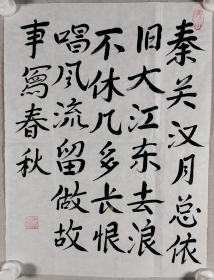 秦关汉月总依
旧大江东去浪
不休几多长恨
唱风流留做故
事写春秋